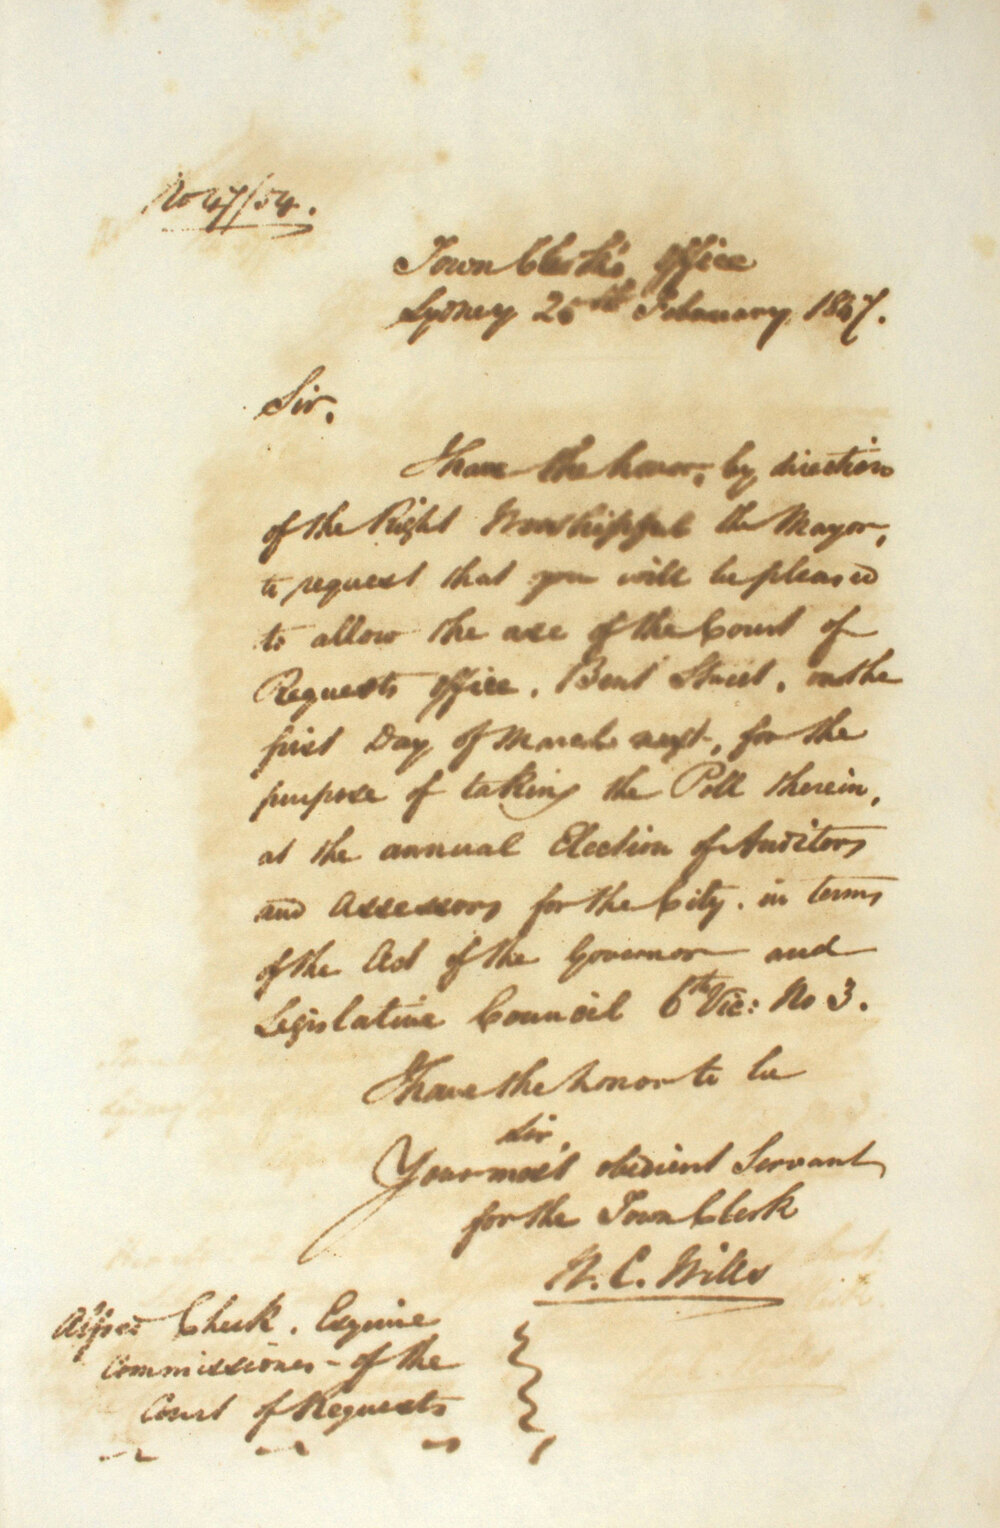 No 47/54.
Town Clerk's Office
Sydney 25th February, 1847.
Sir,
I have the honor, by direction
of the Right Worshipful the Mayor,
to request that you will be pleased
to allow the use of the Court of
Requests Office, Bent Street, on the
first Day of March next, for the
purpose of taking the Poll therein,
at the annual Election of Auditors
and Assessors for the City, in terms
of the Act of the Governor and
Legislative Council 6th Vic: No 3.
I have the honor to be
Sir,
Your most obedient Servant
for the Town Clerk
W. C. Wills
Alfred Cheek, Esquire
Commissioner of the
Court of Requests